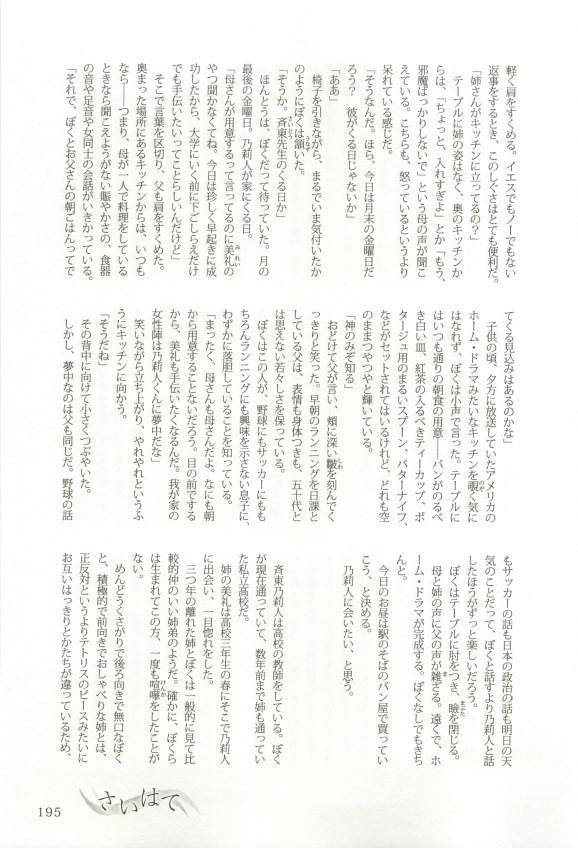 軽く肩をすくめる。イエスでもノーでもない
返事をするとき、このしぐさはとても便利だ。
「姉さんがキッチンに立ってるの？」
テーブルに姉の姿はなく、奥のキッチンか
らは、「ちょっと、入れすぎよ」とか「もう、
邪魔ばっかりしないで」という母の声が聞こ
えている。こちらも、怒っているというより
呆れている感じだ。
「そうなんだ。ほら、今日は月末の金曜日だ
ろう？　彼がくる日じゃないか」
「ああ」
椅子を引きながら、まるでいま気付いたか
のようにぼくは頷いた。
「そうか。斉東先生のくる日か」
ほんとうは、ぼくだって待っていた。月の
最後の金曜日。乃莉人が家にくる日。
「母さんが用意するって言ってるのに美礼の
やつ聞かなくてね。今日は珍しく早起きに成
功したから、大学にいく前に下ごしらえだけ
でも手伝いたいってことらしいんだけど」
そこで言葉を区切り、父も肩をすくめた。
奥まった場所にあるキッチンからは、いつも
なら――つまり、母が一人で料理をしている
ときなら聞こえようがない賑やかさの、食器
の音や足音や女同士の会話がいきかっている。
「それで、ぼくとお父さんの朝ごはんってで
てくる見込みはあるのかな」
子供の頃、夕方に放送していたアメリカの
ホーム・ドラマみたいなキッチンを覗く気に
はなれず、ぼくは小声で言った。テーブルに
はいつも通りの朝食の用意――パンがのるべ
き白い皿、紅茶の入るべきティーカップ、ポ
タージュ用のまるいスプーン、バターナイフ、
などがセットされてはいるけれど、どれも空
のままつやつやと輝いている。
「神のみぞ知る」
おどけて父が言い、頬に深い皺を刻んでく
っきりと笑った。早朝のランニングを日課と
している父は、表情も身体つきも、五十代と
は思えない若々しさを保っている。
ぼくはこの人が、野球にもサッカーにもも
ちろんランニングにも興味を示さない息子に、
わずかに落胆していることを知っている。
「まったく、母さんも母さんだよ。なにも朝
から用意することないだろう。目の前でする
から、美礼も手伝いたくなるんだ。我が家の
女性陣は乃莉人くんに夢中だな」
笑いながら立ち上がり、やれやれというふ
うにキッチンに向かう。
「そうだね」
その背中に向けて小さくつぶやいた。
しかし、夢中なのは父も同じだ。野球の話
もサッカーの話も日本の政治の話も明日の天
気のことだって、ぼくと話すより乃莉人と話
したほうがずっと楽しいだろう。
ぼくはテーブルに肘をつき、瞼を閉じる。
母と姉の声に父の声が雑ざる。遠くで、ホ
ーム・ドラマが完成する。ぼくなしでもきち
んと。
今日のお昼は駅のそばのパン屋で買ってい
こう、と決める。
乃莉人に会いたい、と思う。
斉東乃莉人は高校の教師をしている。ぼく
が現在通っていて、数年前まで姉も通ってい
た私立高校だ。
姉の美礼は高校三年生の春にそこで乃莉人
に出会い、一目惚れをした。
三つ年の離れた姉とぼくは一般的に見て比
較的仲のいい姉弟のようだ。確かに、ぼくら
は生まれてこの方、一度も喧嘩をしたことが
ない。
めんどうくさがりで後ろ向きで無口なぼく
と、積極的で前向きでおしゃべりな姉とは、
正反対というよりテトリスのピースみたいに
お互いはっきりとかたちが違っているため、
さいはて
195